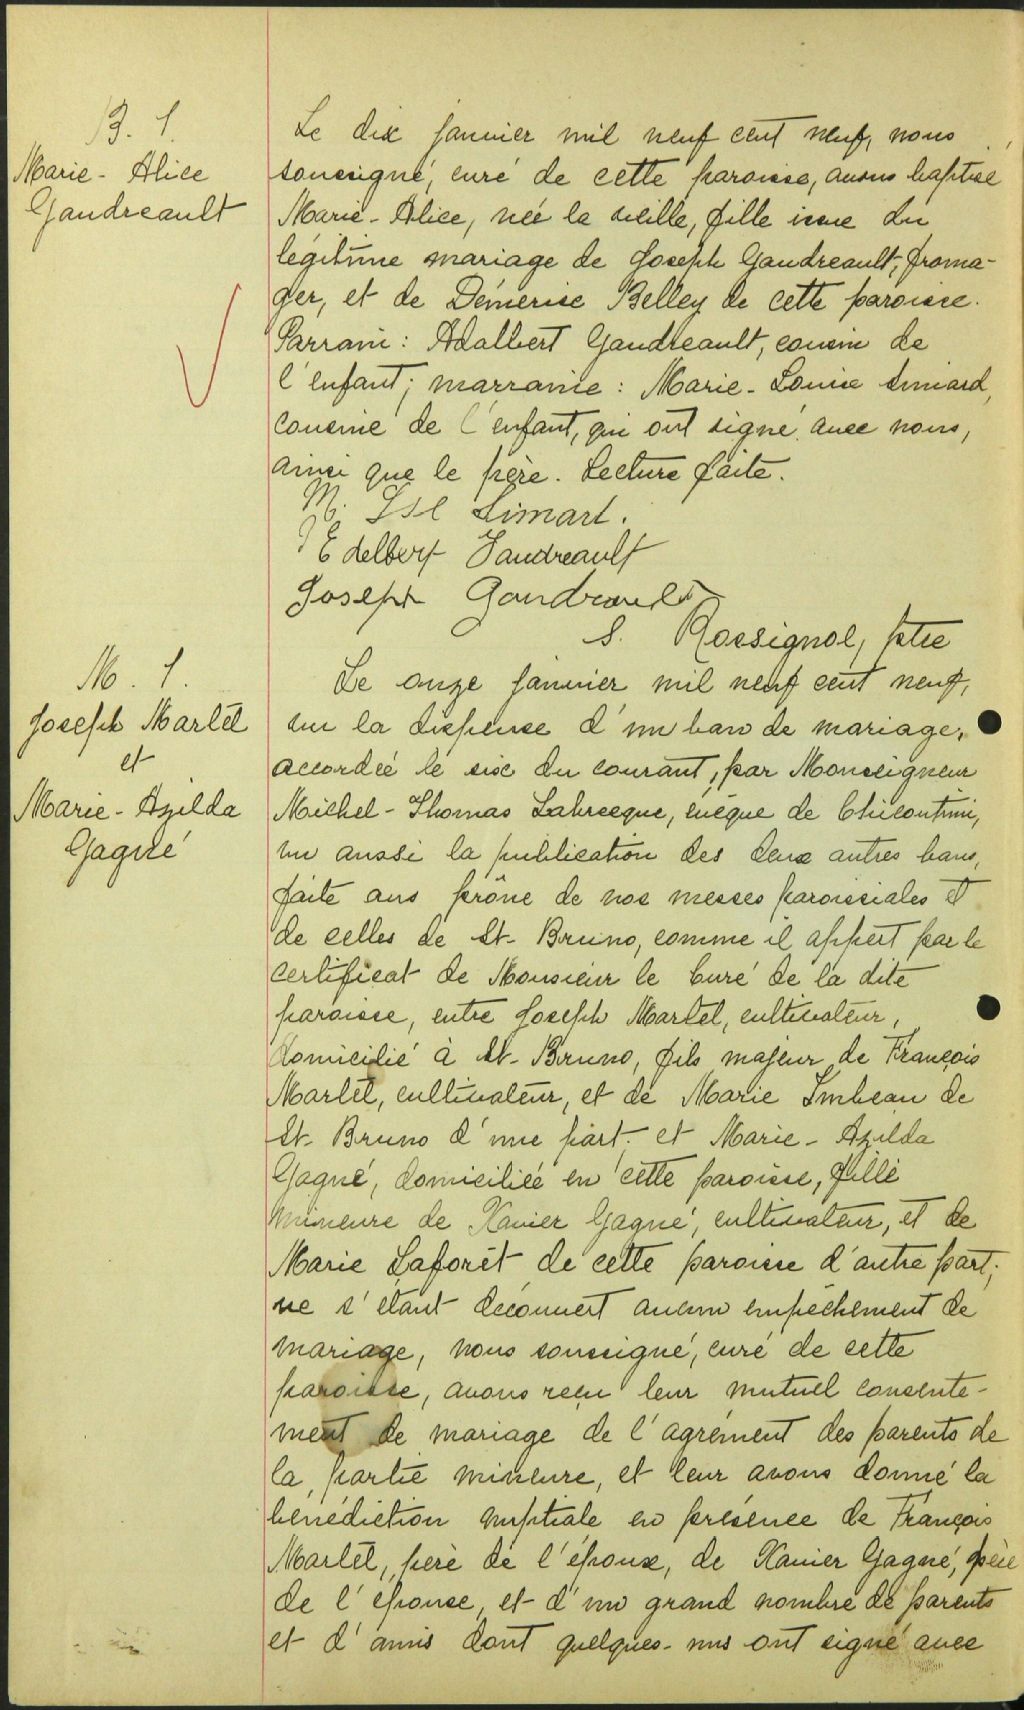 B. 1.
Marie-Alice
Gaudreault
Le dix janvier mil neuf cent neuf, nous
soussigné, curé de cette paroisse, avons baptisé
Marie-Alice, née la veille, fille issue du
légitime mariage de Joseph Gaudreault, froma-
ger, et de Démerise Belley de cette paroisse.
Parrain : Adalbert Gaudreault, cousin de
l'enfant ; marraine : Marie-Louise Simard,
cousine de l'enfant, qui ont signé avec nous,
ainsi que le père. Lecture faite.
M. Lse Simart.
Edelbert Gaudreault
Joseph Gaudreault
S. Rossignol, ptre
M. 1.
Joseph Martel
et
Marie-Azilda
Gagné
Le onze janvier mil neuf cent neuf,
vu la dispense d'un ban de mariage,
accordée le six du courant, par Monseigneur
Michel-Thomas Labrecque, évêque de Chicoutimi,
vu aussi la publication des deux autres bans,
faite aus prône de nos messes paroissiales et
de celles de St-Bruno, comme il appert par le
certificat de Monsieur le Curé de la dite
paroisse, entre Joseph Martel, cultivateur,
domicilié à St-Bruno, fils majeur de François
Martel, cultivateur, et de Marie Imbeau de
St-Bruno d'une part ; et Marie-Azilda
Gagné, domiciliée en cette paroisse, fille
mineure de Xavier Gagné, cultivateur, et de
Marie Laforêt de cette paroisse d'autre part ;
ne s'étant découvert aucun empêchement de
mariage, nous soussigné, curé de cette
paroisse, avons reçu leur mutuel consente-
ment de mariage de l'agrément des parents de
la partie mineure, et leur avons donné la
bénédiction nuptiale en présence de François
Martel, père de l'époux, de Xavier Gagné, père
de l'épouse, et d'un grand nombre de parents
et d'amis dont quelques-uns ont signé avec